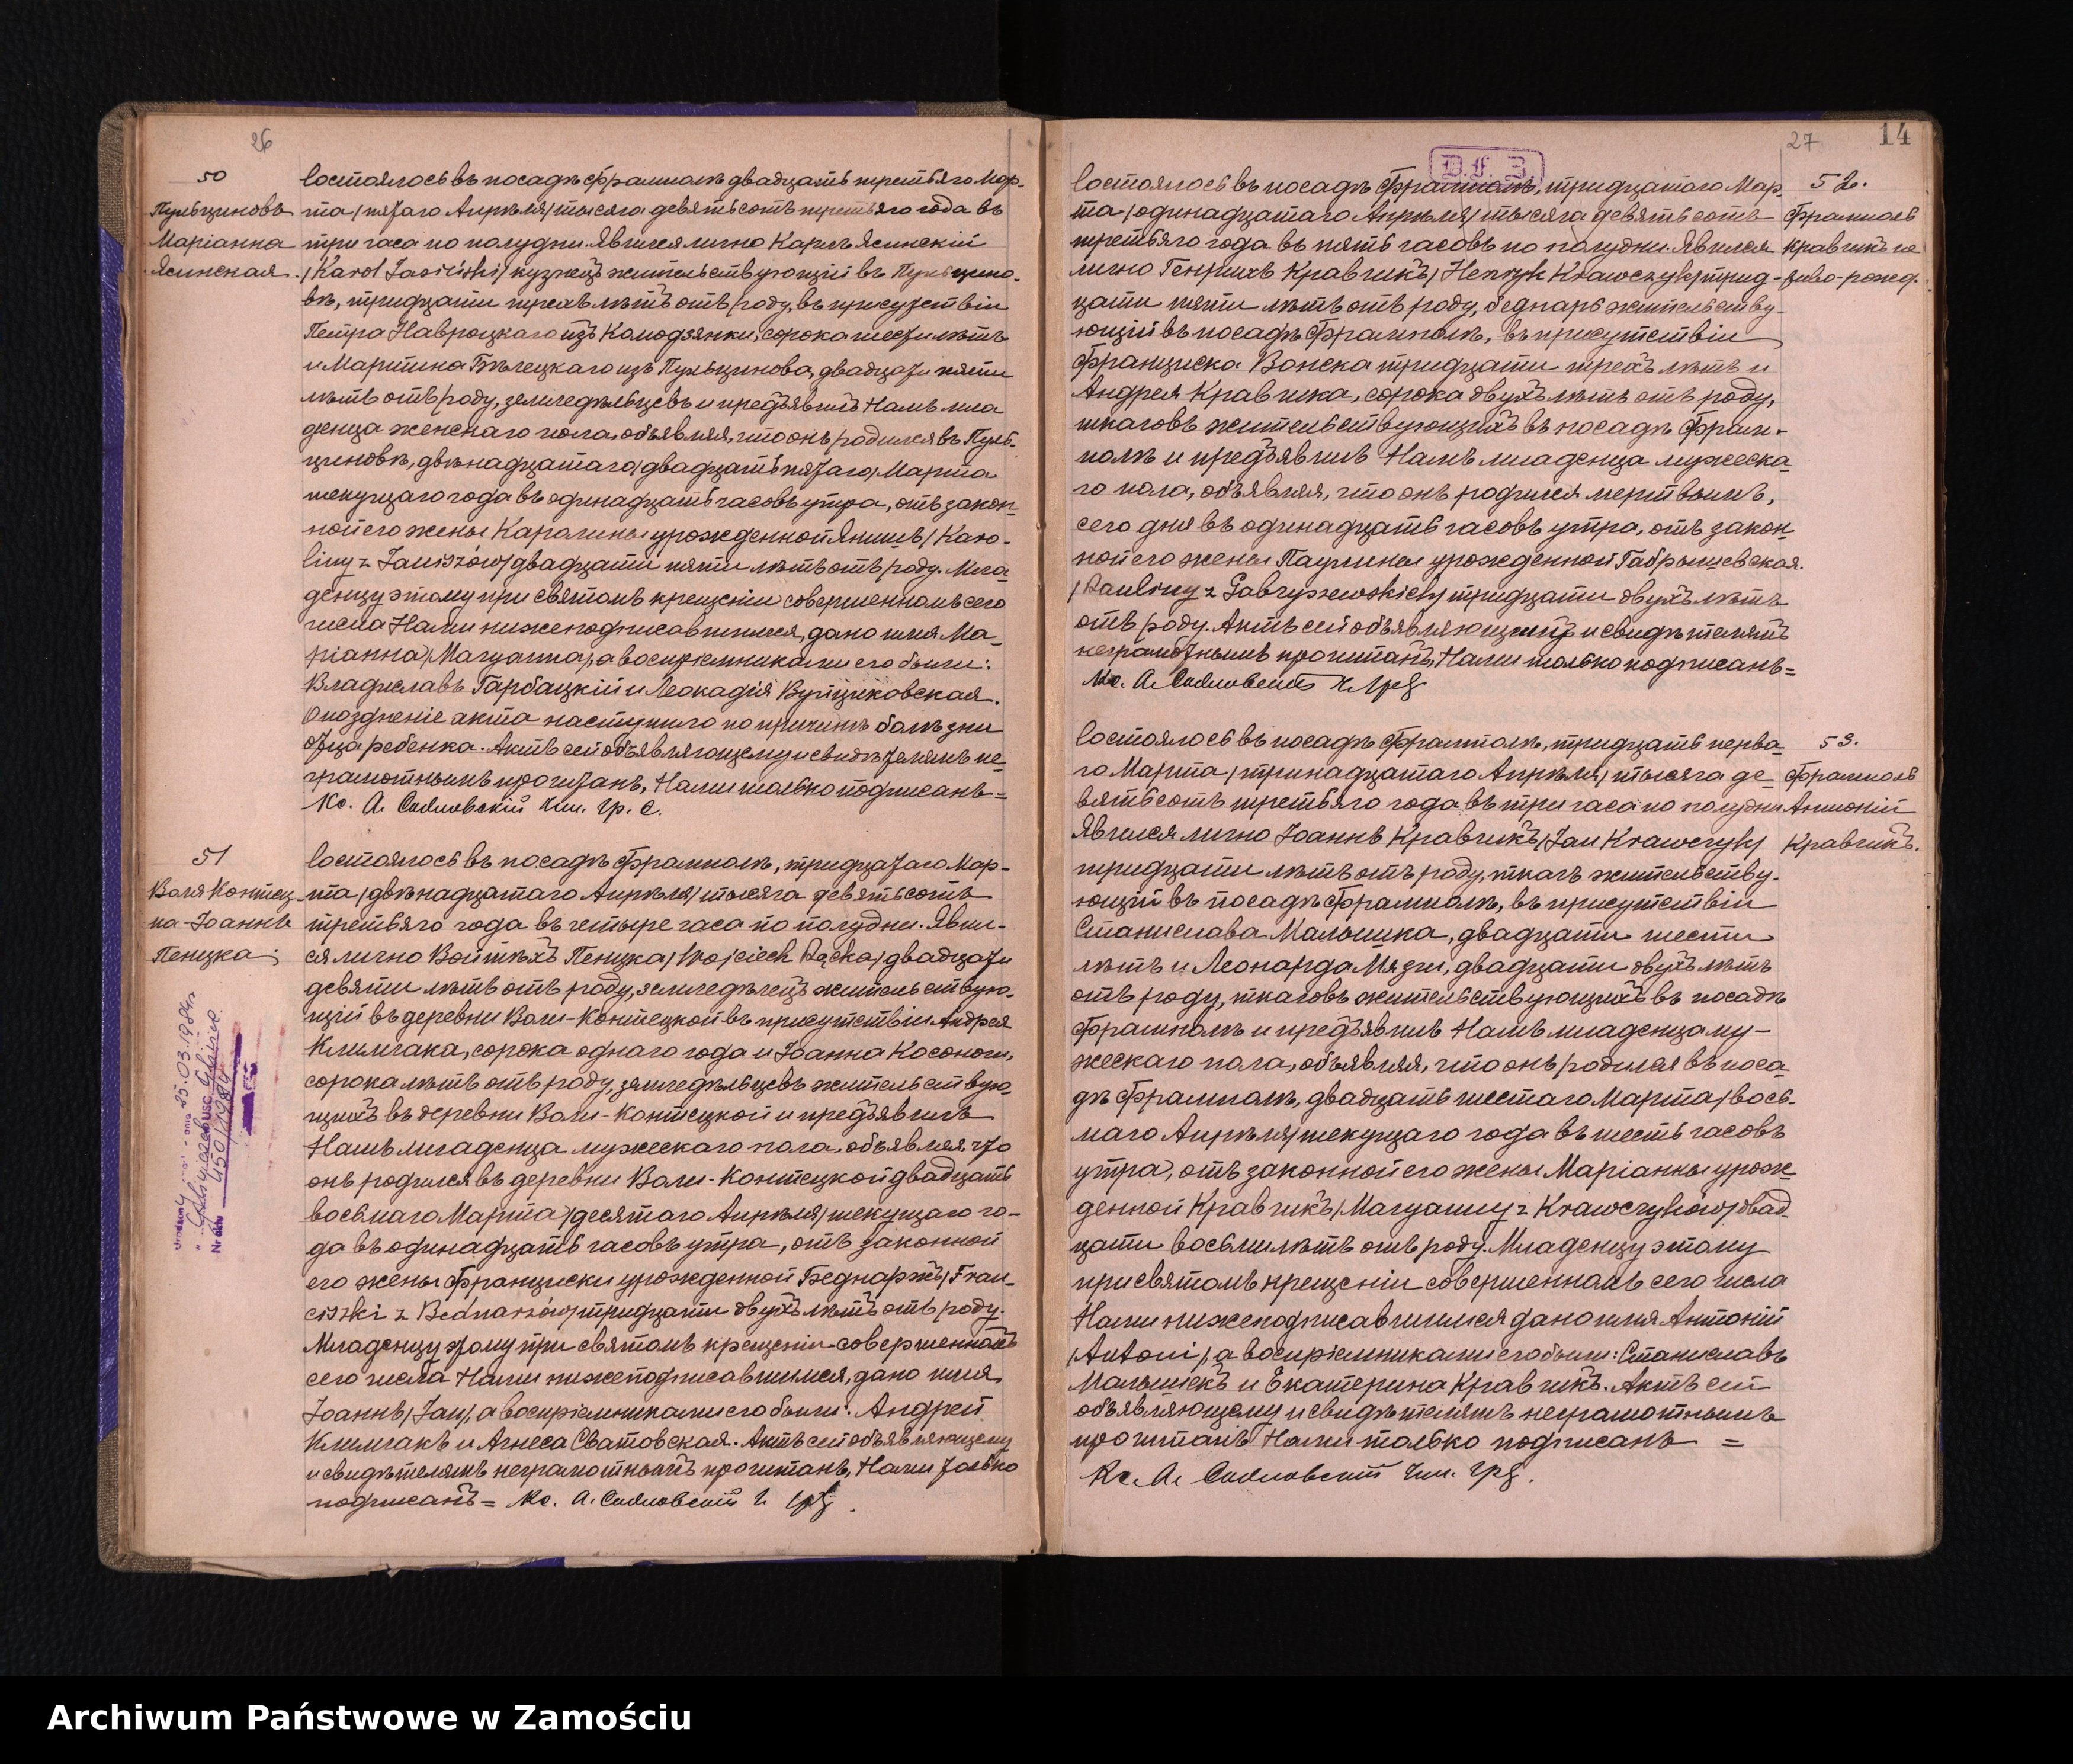 26
50
Пульциновъ
Маріанна
Ясинская.
Состоялось въ посадѣ Фрамполѣ двадцать третьяго Мар-
та /пятаго Апрѣля/ тысяча девятьсотъ третьяго года въ
три часа по полудни. Явился лично Кароль Ясинскій
/Karol Jasiński/ кузнецъ жительствующій въ Пульцино-
вѣ, тридцати трехъ лѣтъ отъ роду, въ присутствіи
Петра Навроцкаго изъ Колодзянки, сорока шести лѣтъ
и Мартина Бѣлецкаго изъ Пульцинова, двадцати пяти
лѣтъ отъ роду, земледѣльцевъ и предъявилъ Намъ мла
денца женскаго пола, объявляя, что онъ родился въ Пуль-
циновѣ, двѣнадцатаго /двадцать пятаго/ Марта
текущаго года въ одинадцать часовъ утра, отъ закон-
ной его жены Каролины урожденной Янишъ /Karo-
liny z Janiszów/ двадцати пяти лѣтъ отъ роду. Мла-
денцу этому при святомъ крещеніи совершенномъ сего
числа Нами нижеподписавшимся, дано имя Ма-
ріанна /Maryanna/, а воспріемниками его были:
Владиславъ Гарбацкій и Леокадія Вуйциковская.
Опозденіе акта наступило по причинѣ болѣзни
отца ребенка. Актъ сей объявляющему и свидѣтелямъ не-
грамотнымъ прочитанъ, Нами только подписанъ =
Кс. А. Сялиовскій Чин. Гр. С.
51
Воля Контец-
ка-Іоаннъ
Пенцка
Состоялось въ посадѣ Фрамполѣ, тридцатаго Мар-
та /двѣнадцатаго Апрѣля/ тысяча девятьсотъ
третьяго года въ четыре часа по полудни. Явил-
ся лично Войтѣхъ Пенцка /Wojciech Pęcka/ двадцати
девяти лѣтъ отъ роду, земледѣлецъ жительствую-
щій въ деревни Воли-Контецкой въ присутствіи Андрея
Климчака, сорока одного года и Іоанна Косоноги,
сорока лѣтъ отъ роду, земледѣльцевъ жительствую-
щихъ въ деревни Воли-Контецкой и предъявилъ
Намъ младенца мужескаго пола, объявляя, что
онъ родился въ деревни Воли-Контецкой двадцать
восьмаго Марта /десятаго Апрѣля/ текущаго го-
да въ одинадцать часовъ утра, отъ законной
его жены Франциски урожденной Беднаржъ /Fran-
ciszki z Bednarzów/ тридцати двухъ лѣтъ отъ роду.
Младенцу этому при святомъ крещеніи совершенномъ
сего числа Нами нижеподписавшимся, дано имя
Іоаннъ /Jan/, а воспріемниками его были: Андрей
Климчакъ и Агнеса Сватовская. Актъ сей объявляющему
и свидѣтелямъ неграмотнымъ прочитанъ, Нами только
подписанъ = Кс. А. Сялиовскій Ч. Гр.
25.03.1984
USC
Nr aktu 450/1984
14
27
D.F.Z.
52.
Фрамполь
Кравчикъ не
живо-рожд.
Состоялось въ посадѣ Фрамполѣ, тридцатаго Мар-
та /одинадцатаго Апрѣля/ тысяча девятьсотъ
третьяго года въ пять часовъ по полудни. Явился
лично Генрихъ Кравчикъ /Henryk Krawczyk/ трид-
цати пяти лѣтъ отъ роду, беднарь жительству-
ющій въ посадѣ Фрамполѣ, въ присутствіи
Франциска Вонска тридцати трехъ лѣтъ и
Андрея Кравчика, сорока двухъ лѣтъ отъ роду,
ткачовъ жительствующихъ въ посадѣ Фрам-
полѣ и предъявилъ Намъ младенца мужеска-
го пола, объявляя, что онъ родился мертвымъ,
сего дня въ одинадцать часовъ утра, отъ закон-
ной его жены Паулины урожденной Габрышевская.
/Pauliny z Gabryszewskich/ тридцати двухъ лѣтъ
отъ роду. Актъ сей объявляющему и свидѣтелямъ
неграмотнымъ прочитанъ, Нами только подписанъ =
Кс. А. Сялиовскій
53.
Фрамполь
Антоній
Кравчикъ.
Состоялось въ посадѣ Фрамполѣ, тридцать перва-
го Марта /тринадцатаго Апрѣля/ тысяча де-
вятьсотъ третьяго года въ три часа по полудни
Явился лично Іоаннъ Кравчикъ /Jan Krawczyk/
тридцати лѣтъ отъ роду, ткачъ жительству-
ющій въ посадѣ Фрамполѣ, въ присутствіи
Станислава Малышка, двадцати шести
лѣтъ и Леонарда Мязги, двадцати двухъ лѣтъ
отъ роду, ткачовъ жительствующихъ въ посадѣ
Фрамполѣ и предъявилъ Намъ младенца му-
жескаго пола, объявляя, что онъ родился въ поса-
дѣ Фрамполѣ, двадцать шестаго Марта /вось-
маго Апрѣля/ текущаго года въ шесть часовъ
утра, отъ законной его жены Маріанны урож-
денной Кравчикъ /Maryanny z Krawczyków/ двад-
цати восьми лѣтъ отъ роду. Младенцу этому
при святомъ крещеніи совершенномъ сего числа
Нами нижеподписавшимся дано имя Антоній
/Antoni/, а воспріемниками его были: Станиславъ
Малышекъ и Екатерина Кравчикъ. Актъ сей
объявляющему и свидѣтелямъ неграмотнымъ
прочитанъ Нами только подписанъ =
Кс. А. Сялиовскій Чин. Гр.
Archiwum Państwowe w Zamościu